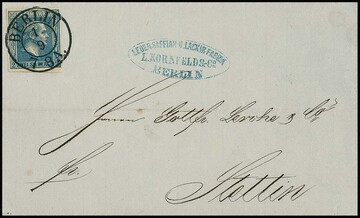 BERLIN
LEDER SAFFIAN U. LACKIR FABRIK
L. KORNFELD & Co
BERLIN
Herrn Gottfr. Lerche & Co
Stettin